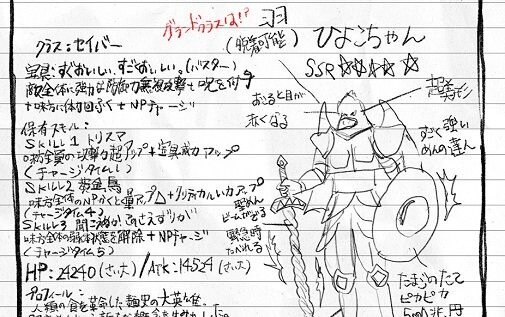 グランドクラスは!?
羽
(脱着可能)
ひよこちゃん
SSR ☆☆☆☆☆
クラス:セイバー
宝具:すごおいしい、すごおいしい。(バスター)
敵全体に強力な防御力無視攻撃+呪を付与
+味方に体力回ふく+NPチャージ
保有スキル:
Skill1 トリスマ
味方全員の攻撃力超アップ+宝具威力アップ
(チャージタイム
Skill2 黄金鳥
味方全体のNPかくとく量アップ+クリティカルい力アップ
(チャージタイム4)
Skill3
味方全体の弱体状態を解除+NPチャージ
(チャージタイム5)
HP:24240(さい大)/ATK:14524(さい大)
プロフィール:
人類の食を革命した麺史の大英雄。
おこると目が
赤くなる
超美形
すごく強い
めんの達人
聖めん
ビームがでる
緊急時
たべれる
たまごのたて
ピカピカ
5000兆円